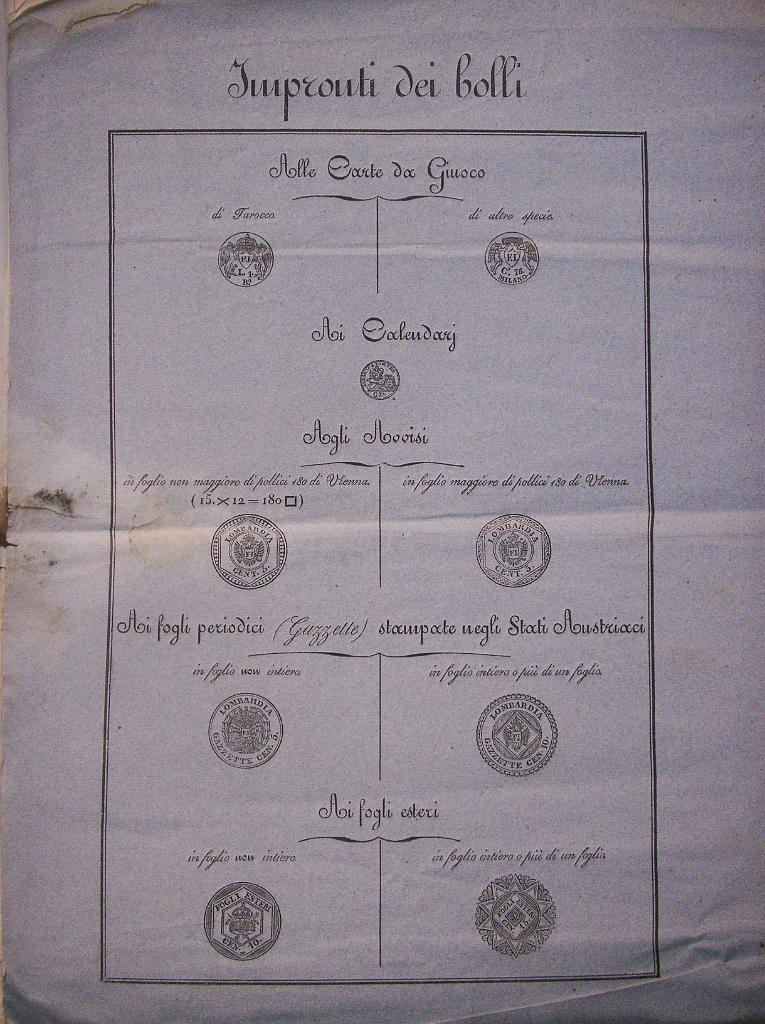 Impronti dei bolli
Alle Carte da Giuoco
di Tarocco
di altro specie.
FI
L. 1.
EI
C. 75.
MILANO
Ai Calendarj
Agli Avvisi
in foglio non maggiore di pollici 180 di Vienna.
(15. × 12 = 180 □)
in foglio maggiore di pollici 180 di Vienna.
LOMBARDIA
FI
CENT. 3.
LOMBARDIA
FI
CENT. 5.
Ai fogli periodici (Gazzette) stampate negli Stati Austriaci
in foglio non intiero.
in foglio intiero o più di un foglio.
LOMBARDIA
FI
GAZZETTE CEN. 5.
LOMBARDIA
FI
GAZZETTE CEN. 10.
Ai fogli esteri
in foglio non intiero
in foglio intiero o più di un foglio
FOGLI ESTERI
CEN. 10.
FOGLI ESTERI
CEN.